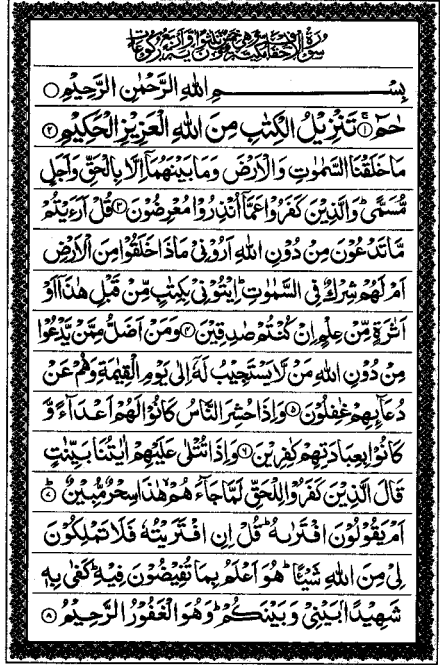 سُوۡرَةُ الۡاَحۡقَافِ مَكِّيَّةٌ
بِسۡـــــــــمِ اللهِ الرَّحۡمٰنِ الرَّحِيۡمِ
حٰمٓ ۚ‏﴿۱﴾ تَنۡزِيۡلُ الۡكِتٰبِ مِنَ اللهِ الۡعَزِيۡزِ الۡحَكِيۡمِ ﴿۲﴾
مَا خَلَقۡنَا السَّمٰوٰتِ وَالۡاَرۡضَ وَمَا بَيۡنَهُمَاۤ اِلَّا بِالۡحَقِّ وَاَجَلٍ
مُّسَمًّى ؕ وَالَّذِيۡنَ كَفَرُوۡا عَمَّاۤ اُنۡذِرُوۡا مُعۡرِضُوۡنَ ﴿۳﴾ قُلۡ اَرَءَيۡتُمۡ
مَّا تَدۡعُوۡنَ مِنۡ دُوۡنِ اللهِ اَرُوۡنِىۡ مَاذَا خَلَقُوۡا مِنَ الۡاَرۡضِ
اَمۡ لَهُمۡ شِرۡكٌ فِى السَّمٰوٰتِ ؕ اِيۡتُوۡنِىۡ بِكِتٰبٍ مِّنۡ قَبۡلِ هٰذَاۤ اَوۡ
اَثٰرَةٍ مِّنۡ عِلۡمٍ اِنۡ كُنۡتُمۡ صٰدِقِيۡنَ ﴿۴﴾ وَمَنۡ اَضَلُّ مِمَّنۡ يَّدۡعُوۡا
مِنۡ دُوۡنِ اللهِ مَنۡ لَّا يَسۡتَجِيۡبُ لَهٗۤ اِلٰى يَوۡمِ الۡقِيٰمَةِ وَهُمۡ عَنۡ
دُعَآٮِٕهِمۡ غٰفِلُوۡنَ ﴿۵﴾ وَاِذَا حُشِرَ النَّاسُ كَانُوۡا لَهُمۡ اَعۡدَآءً وَّ
كَانُوۡا بِعِبَادَتِهِمۡ كٰفِرِيۡنَ ﴿۶﴾ وَاِذَا تُتۡلٰى عَلَيۡهِمۡ اٰيٰتُنَا بَيِّنٰتٍ
قَالَ الَّذِيۡنَ كَفَرُوۡا لِلۡحَقِّ لَمَّا جَآءَهُمۡ ۙ هٰذَا سِحۡرٌ مُّبِيۡنٌ ؕ ﴿۷﴾
اَمۡ يَقُوۡلُوۡنَ افۡتَرٰٮهُ ؕ قُلۡ اِنِ افۡتَرَيۡتُهٗ فَلَا تَمۡلِكُوۡنَ
لِىۡ مِنَ اللهِ شَيۡـًٔا ؕ هُوَ اَعۡلَمُ بِمَا تُفِيۡضُوۡنَ فِيۡهِ ؕ كَفٰى بِهٖ
شَهِيۡدًاۢ بَيۡنِىۡ وَبَيۡنَكُمۡ ؕ وَهُوَ الۡغَفُوۡرُ الرَّحِيۡمُ ﴿۸﴾